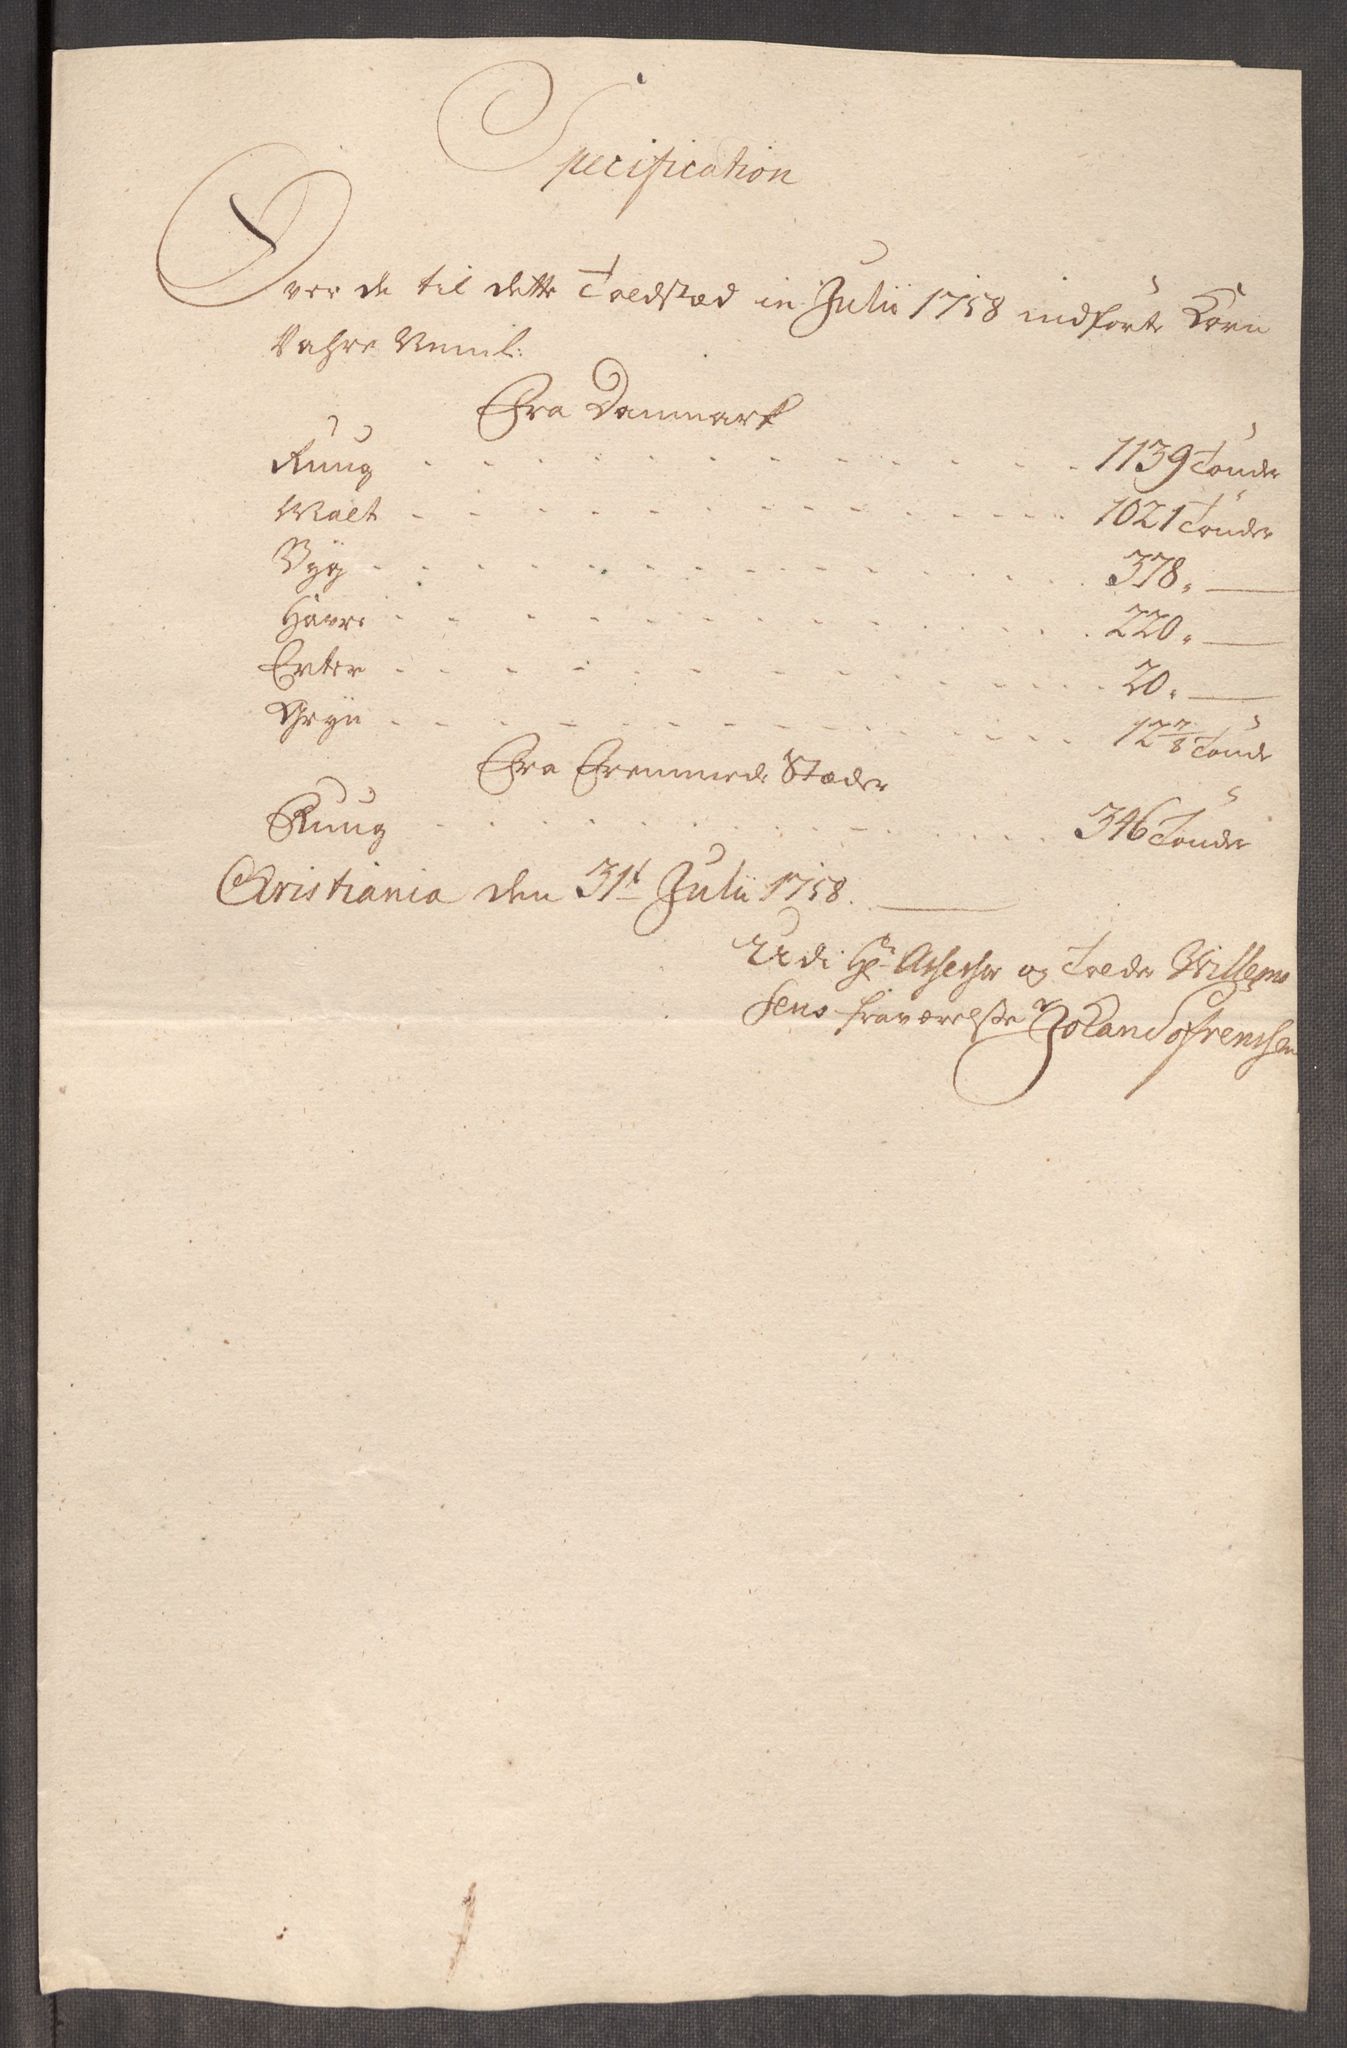 Specification
Over de til dette Toldsted in Julii 1758 indførte Korn
Vahre Neml:
Fra Danmark
Ruug - - - 1139 Tønder
Malt - - - 1021 Tønder
Byg - - - 378 " —
Havre - - - 220 " —
Erter - - - 20 " —
Gryn - - - 12 7/8 Tønde
Fra Fremmede Stæder
Ruug - - - 346 Tønder
Christiania den 31t Julii 1758. —
Udi Hr Assessor og Tolder Willems
sens fraværelse Johan Sofrensen